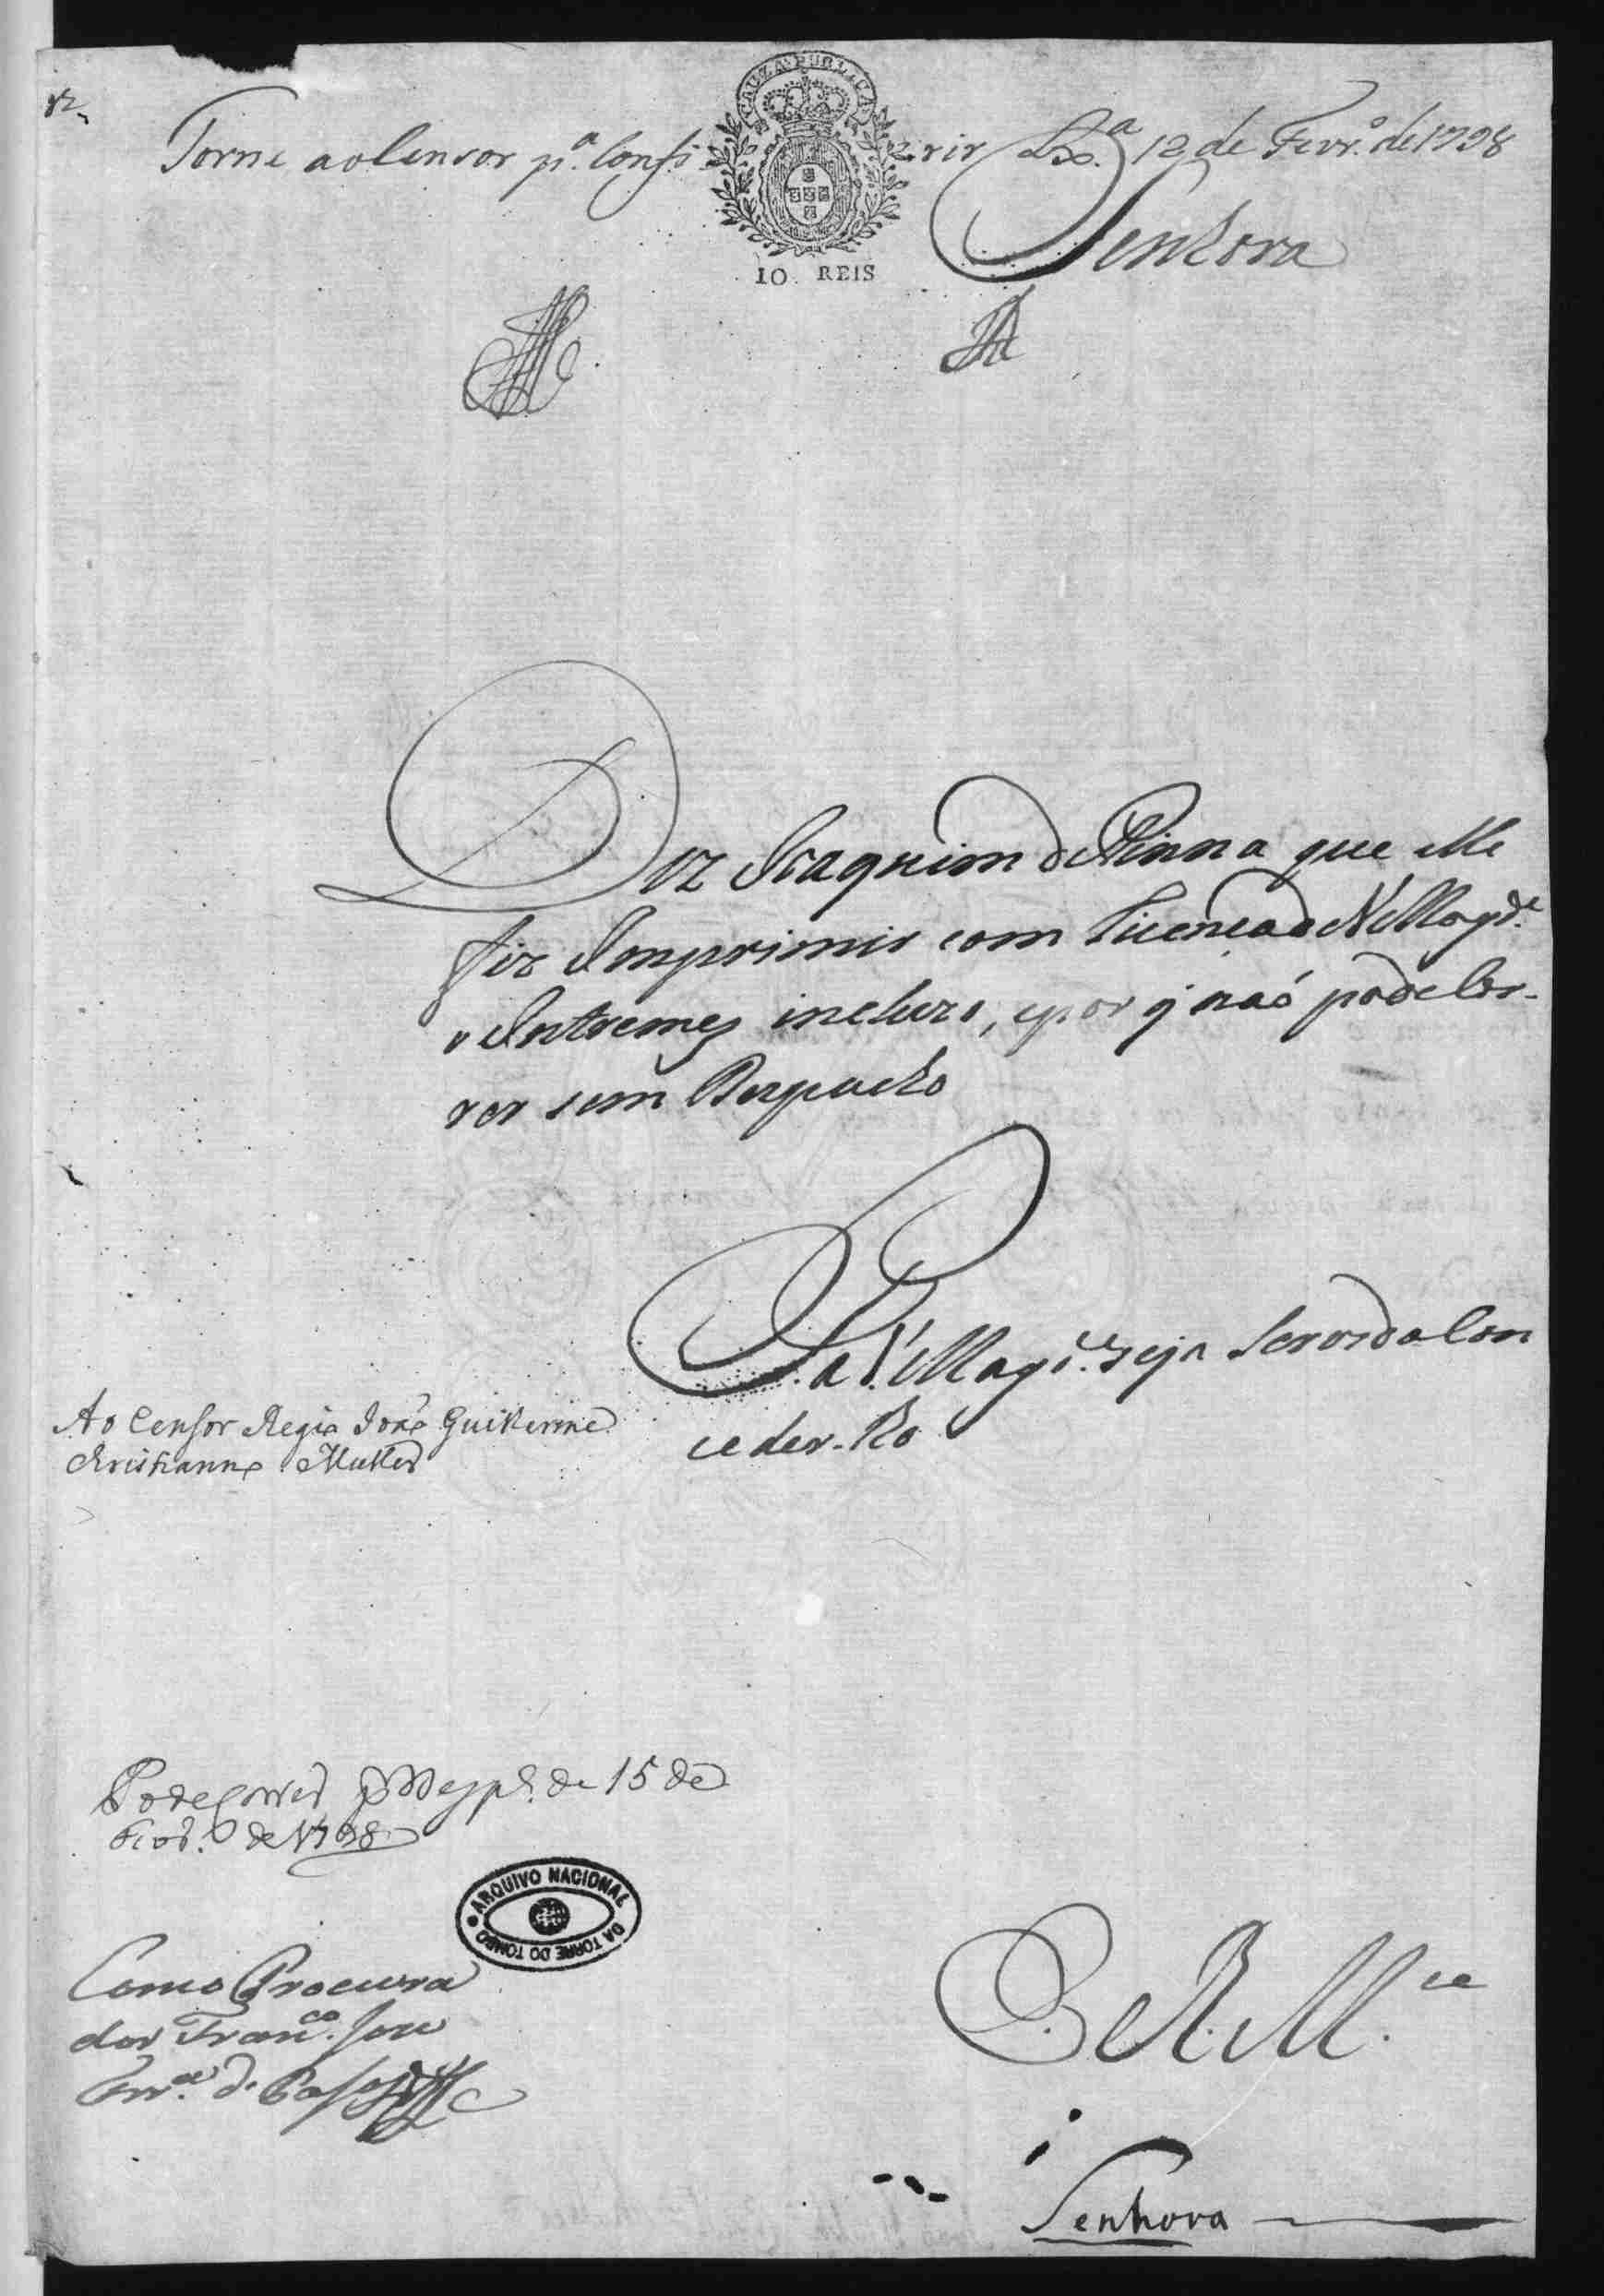 CAUZA PUBLICA
Torne ao Censor pª. Confe rir Lxª. 12 de Fevrº. de 1798
10 REIS
Senhora
Diz Joaquim de Pinna que elle
fez Imprimir com Licença de V. Magde.
o Intremez incluzo, e por q̃ naõ pode Cor-
rer sem Despacho
Pa. V. Magde. seja Servida Con
ceder-lho
Ao Censor Regio Joaõ Guilherme
Christianno Muller
Pode Correr Despº. de 15 de
Fevrº. de 1798
ARQUIVO NACIONAL DA TORRE DO TOMBO
Como Procura
dor Franco. Joze
E R Mce
Senhora